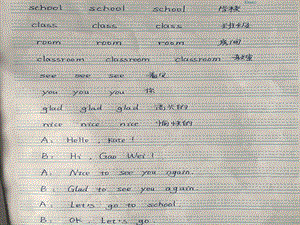 school school school 学校
class class class 班级
room room room 房间
classroom classroom classroom 教室
see see see 看见
you you you 你
glad glad glad 高兴的
nice nice nice 愉快的
A: Hello, Kate!
B: Hi, Gao Wei!
A: Nice to see you again.
B: Glad to see you again.
A: Let's go to school.
B: OK. Let's go.